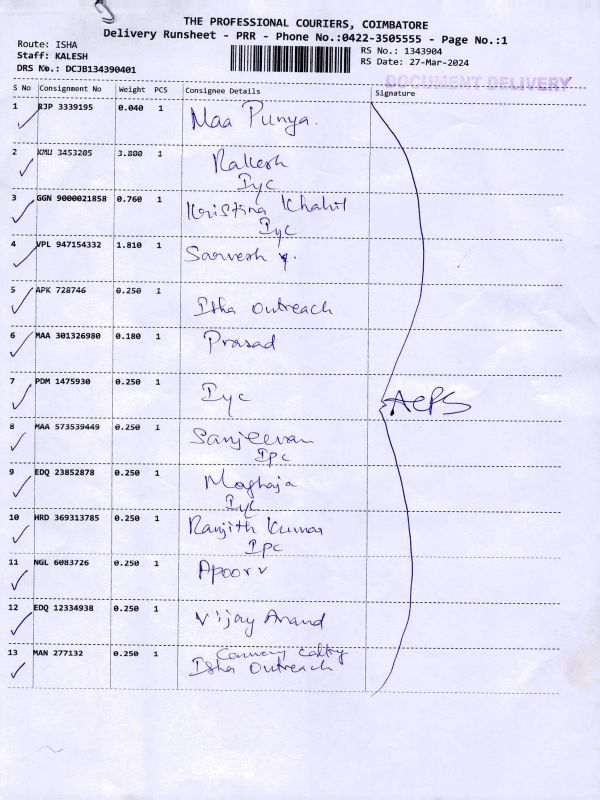 THE PROFESSIONAL COURIERS, COIMBATORE
Delivery Runsheet - PRR - Phone No.:0422-3505555 - Page No.:1
Route: ISHA
Staff: KALESH
DRS No.: DCJB134390401
RS No.: 1343904
RS Date: 27-Mar-2024
DOCUMENT DELIVERY
S No Consignment No Weight PCS Consignee Details Signature
1 RJP 3339195 0.040 1 Maa Punya.
2 KMU 3453205 3.800 1 Rakesh
Iyc
3 GGN 9000021858 0.760 1 Kristina Khahil
Iyc
4 VPL 947154332 1.810 1 Sarvesh y.
5 APK 728746 0.250 1 Isha Outreach
6 MAA 301326980 0.180 1 Prasad
7 PDM 1475930 0.250 1 Iyc
ACPS
8 MAA 573539449 0.250 1 Sanjeevan
Ipc
9 EDQ 23852878 0.250 1 Moghaja
Iyc
10 HRD 369313785 0.250 1 Ranjith Kumar
Ipc
11 NGL 6083726 0.250 1 Apoorv
12 EDQ 12334938 0.250 1 Vijay Anand
13 MAN 277132 0.250 1
Isha Outreach